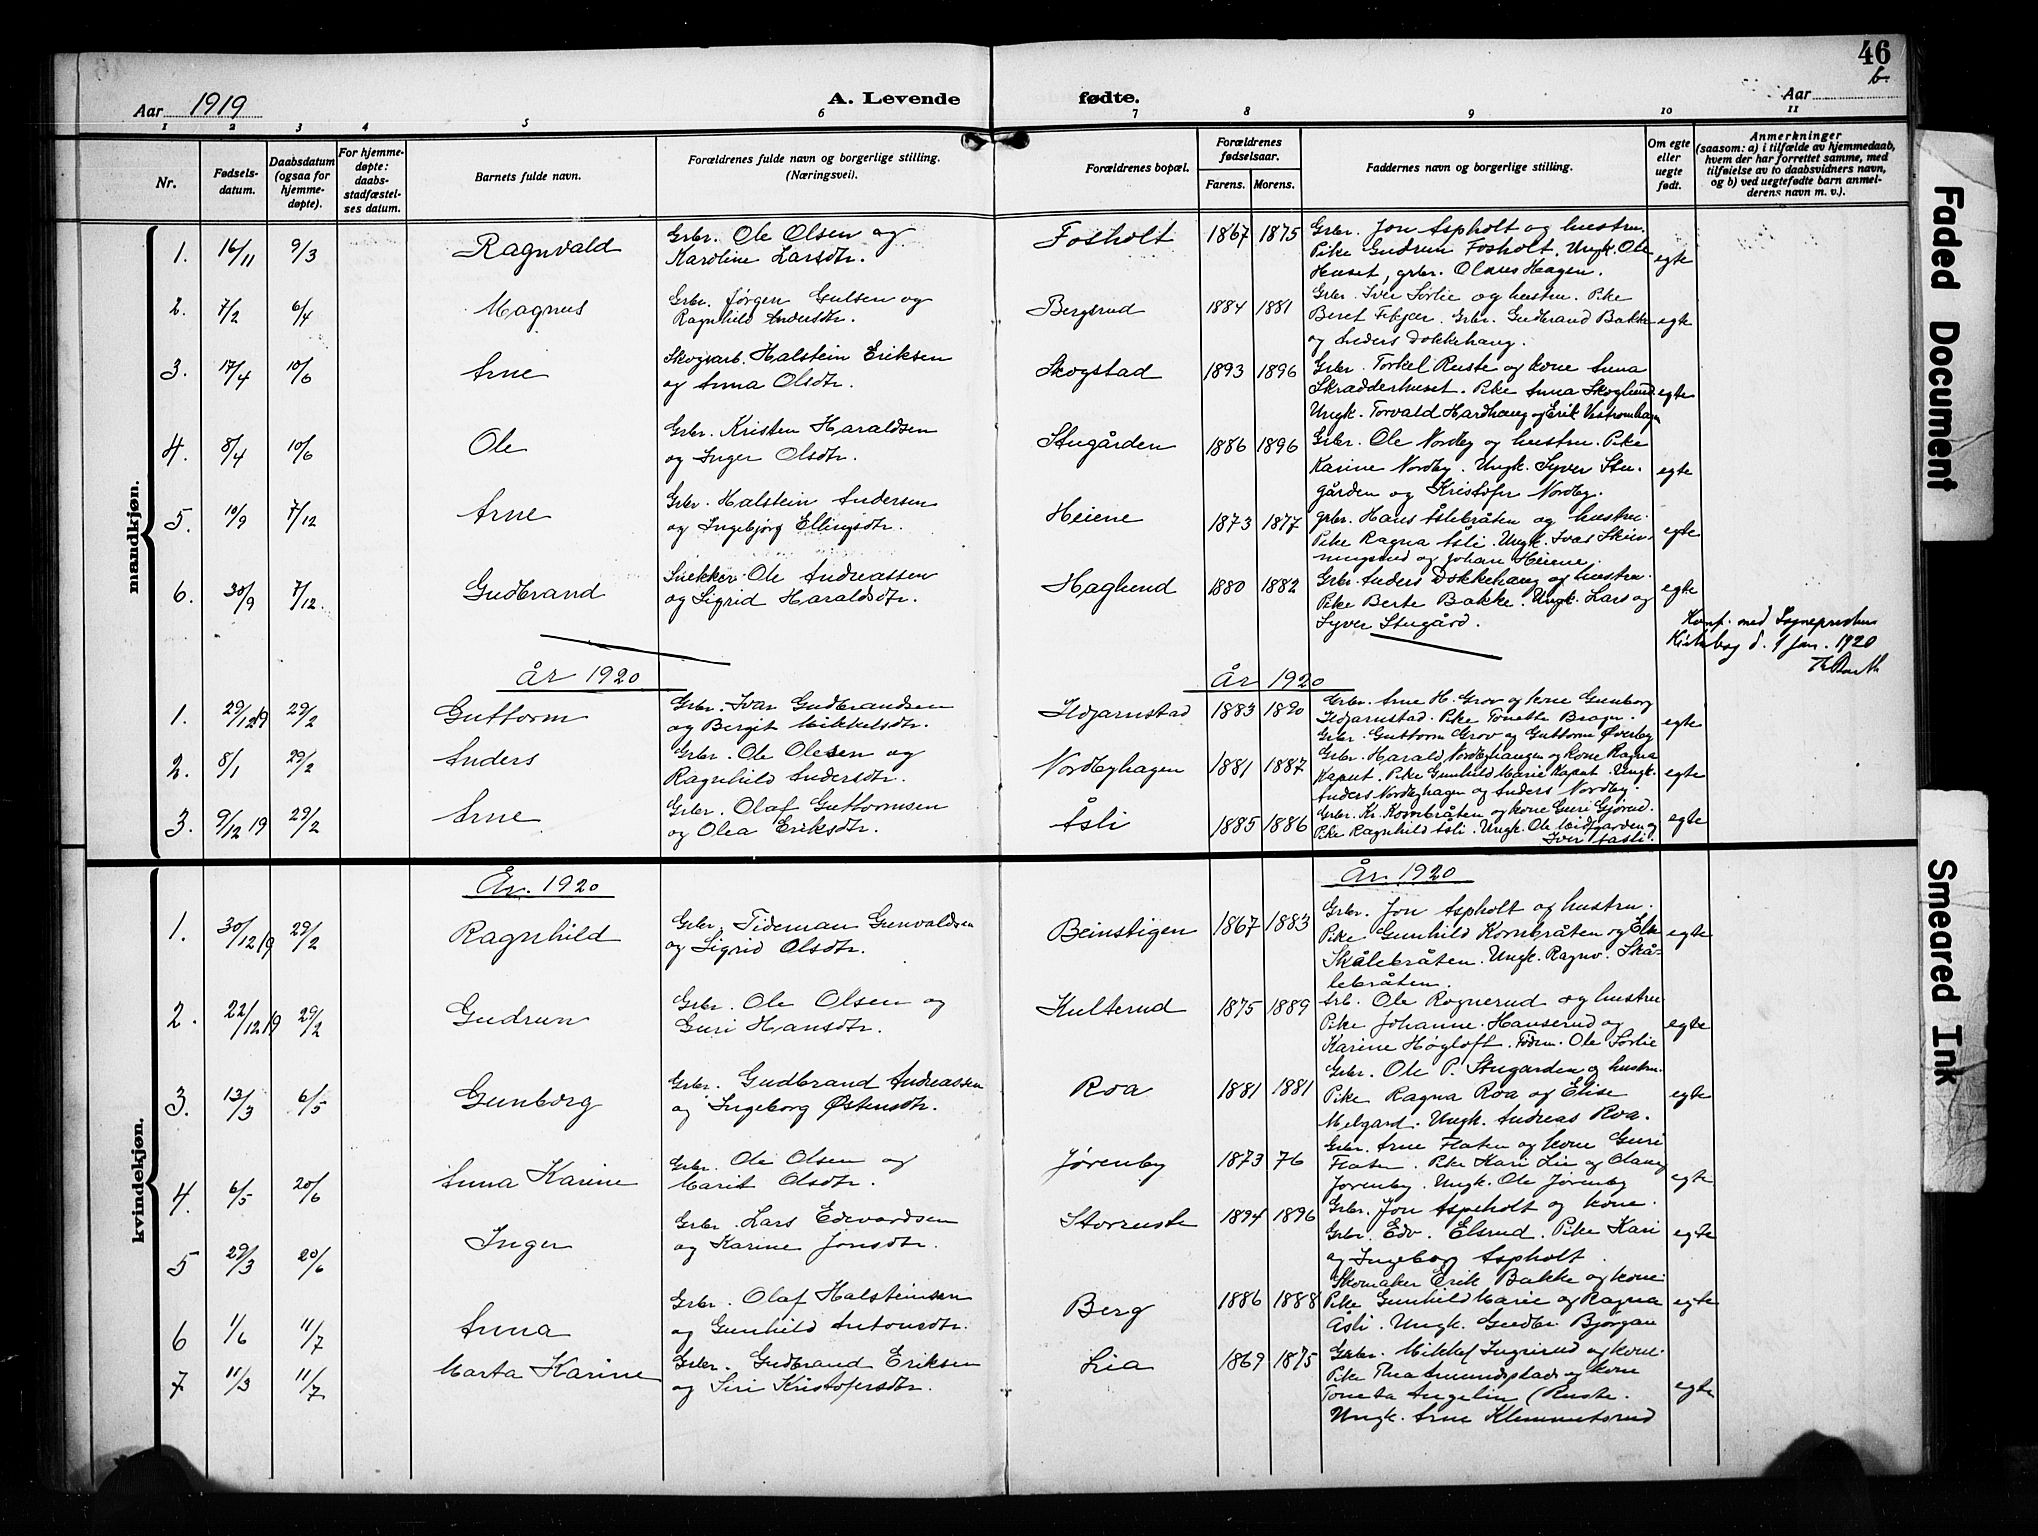 46
b.
Aar 1919
A. Levende fødte.
Aar
1 2 3 4 5 6 7 8 9 10 11
Nr.
Fødsels-
datum.
Daabsdatum
(ogsaa for
hjemme-
døpte).
For hjemme-
døpte:
daabs-
stadfæstel-
ses datum.
Barnets fulde navn.
Forældrenes fulde navn og borgerlige stilling.
(Næringsvei).
Forældrenes bopæl.
Forældrenes
fødselsaar.
Farens. Morens.
Faddernes navn og borgerlige stilling.
Om egte
eller
uegte
født.
Anmerkninger
(saasom: a) i tilfælde av hjemmedaab,
hvem der har forrettet samme, med
tilføielse av to daabsvidners navn,
og b) ved uegtefødte barn anmel-
derens navn m. v.).
mandkjøn.
1. 16/11 9/3 Ragnvald
Grbr. Ole Olsen og
Karoline Larsdtr.
Fosholt 1867 1875
Grbr. Jon Aspholt og hustru.
Pike Gudrun Fosholt. Ungk. Ole
Huset, grbr. Olaves Hagen.
egte
2. 7/2 6/4 Magnus
Grbr. Jørgen Gulsen og
Ragnhild Andersdtr.
Bergsrud 1884 1881
Grbr. Iver Sørlie og hustru. Pike
Beret Fekjær. Grbr. Gudbrand Bakke
og Anders Dokkehaug.
egte
3. 17/4 10/6 Arne
Skogsarb. Halstein Eriksen
og Anna Olsdtr.
Skogstad 1893 1896
Grbr. Torkel Ruste og kone Anna
Skradderhuset. Pike Anna Skoglund
Ungk. Torvald Hardhaug og Erik
egte
4. 8/4 10/6 Ole
Grbr. Kristen Haraldsen
og Inger Olsdtr.
Stugården 1886 1896
Grbr. Ole Nordby og hustru. Pike
Karine Nordby. Ungk. Syver Stu-
gården og Kristofer Nordby.
egte
5. 10/9 7/12 Arne
Grbr. Halstein Andersen
og Ingebjørg Ellingsdtr.
Heiene 1873 1877
grbr. Hans Åslebråten og hustru.
Pike Ragna Åsli. Ungk. Ivar
og Johan Heiene.
egte
6. 30/9 7/12. Gudbrand
Snekker Ole Andreassen
og Sigrid Haraldsdtr.
Haglund 1880 1882
Grbr. Anders Dokkehaug og hustru.
Pike Berte Bakke. Ungk. Lars og
Syver Stugård.
egte
Konf. med Sogneprestens
Kirkebog d. 9 Jan. 1920
år 1920
År 1920
1. 29/12 19 29/2 Guttorm
Grbr. Ivar Gudbrandsen
og Bergit Mikkelsdtr.
Ildjarnstad 1883 1890
Grbr. Arne H. Grov og kone Gunborg
Ildjarnstad. Pike Tonette Bragn.
Grbr. Guttorm Grov og Guttorm Øverby
egte
2. 8/1 29/2 Anders
Grbr. Ole Olesen og
Ragnhild Andersdtr.
Nordbyhagen 1881 1887
Grbr. Harald Nordbyhaugen og kone Ragna
Kaput. Pike Gunhild Marie Kaput. Ungk.
Anders Nordbyhagen og Anders Nordby.
egte
3. 9/12 19 29/2 Arne
Grbr. Olaf Guttormsen
og Olea Eriksdtr.
Åsli 1885 1886
Grbr. Kr. Kornbråten og kone Guri Gjørud.
Pike Ragnhild Åsli. Ungk. Ole Midtgarden og
Iver Aasli.
egte
kvindekjøn.
År. 1920
År 1920
1. 30/12 19 29/2 Ragnhild
Grbr. Tideman Gunvaldsen
og Sigrid Olsdtr.
Beinstigen 1867 1883
Grbr. Jon Aspholt og hustru.
Pike Gunhild Kornbråten og
Skålebråten. Ungk. Ragnv. Skå-
lebråten.
egte
2. 22/12 19 29/2 Gudrun
Grbr. Ole Olsen og
Guri Hansdtr.
Kulterud 1875 1889
Arb. Ole Rognerud og hustru
Pike Johanne Hanserud og
Karine Høgloft. Tidem. Ole Sørlie
egte
3. 13/3 6/5 Gunborg
Grbr. Gudbrand Andreassen
og Ingeborg Østensdtr.
Roa 1881 1881
Grbr. Ole P. Stugarden og hustru.
Pike Ragna Roa og Elise
Melgard. Ungk. Andreas Roa.
egte
4. 6/5 20/6 Anna Karine
Grbr. Ole Olsen og
Marit Olsdtr.
Jørenby 1873 76
Grbr. Arne Flaten og kone Guri
Flaten. Pike Kari Lie og Olaug
Jørenby. Ungk. Ole Jørenby
egte
5 29/3 20/6 Inger
Grbr. Lars Edvardsen
og Karine Jonsdtr.
Storruste 1894 1896
Grbr. Jon Aspeholt og kone.
Grbr. Edv. Elsrud. Pike Kari
og Ingeborg Aspholt.
egte
6 1/6 11/7 Anna
Grbr. Olaf Halsteinsen
og Gunhild Antonsdtr.
Berg 1886 1888
Skomaker Erik Bakke og kone.
Pike Gunhild Marie og Ragna
Åsli. Ungk. Gudbr. Bjørgan
egte
7 11/3 11/7 Marta Karine
Grbr. Gudbrand Eriksen
og Siri Kristofersdtr.
Lia 1869 1875
Grbr. Mikkel Ingrirud og kone
Pike Thea Amundstad og kone
Toneta Angelin (Ruste.
Ungk. Arne Klemmetsrud
egte
Faded Document
Smeared Ink